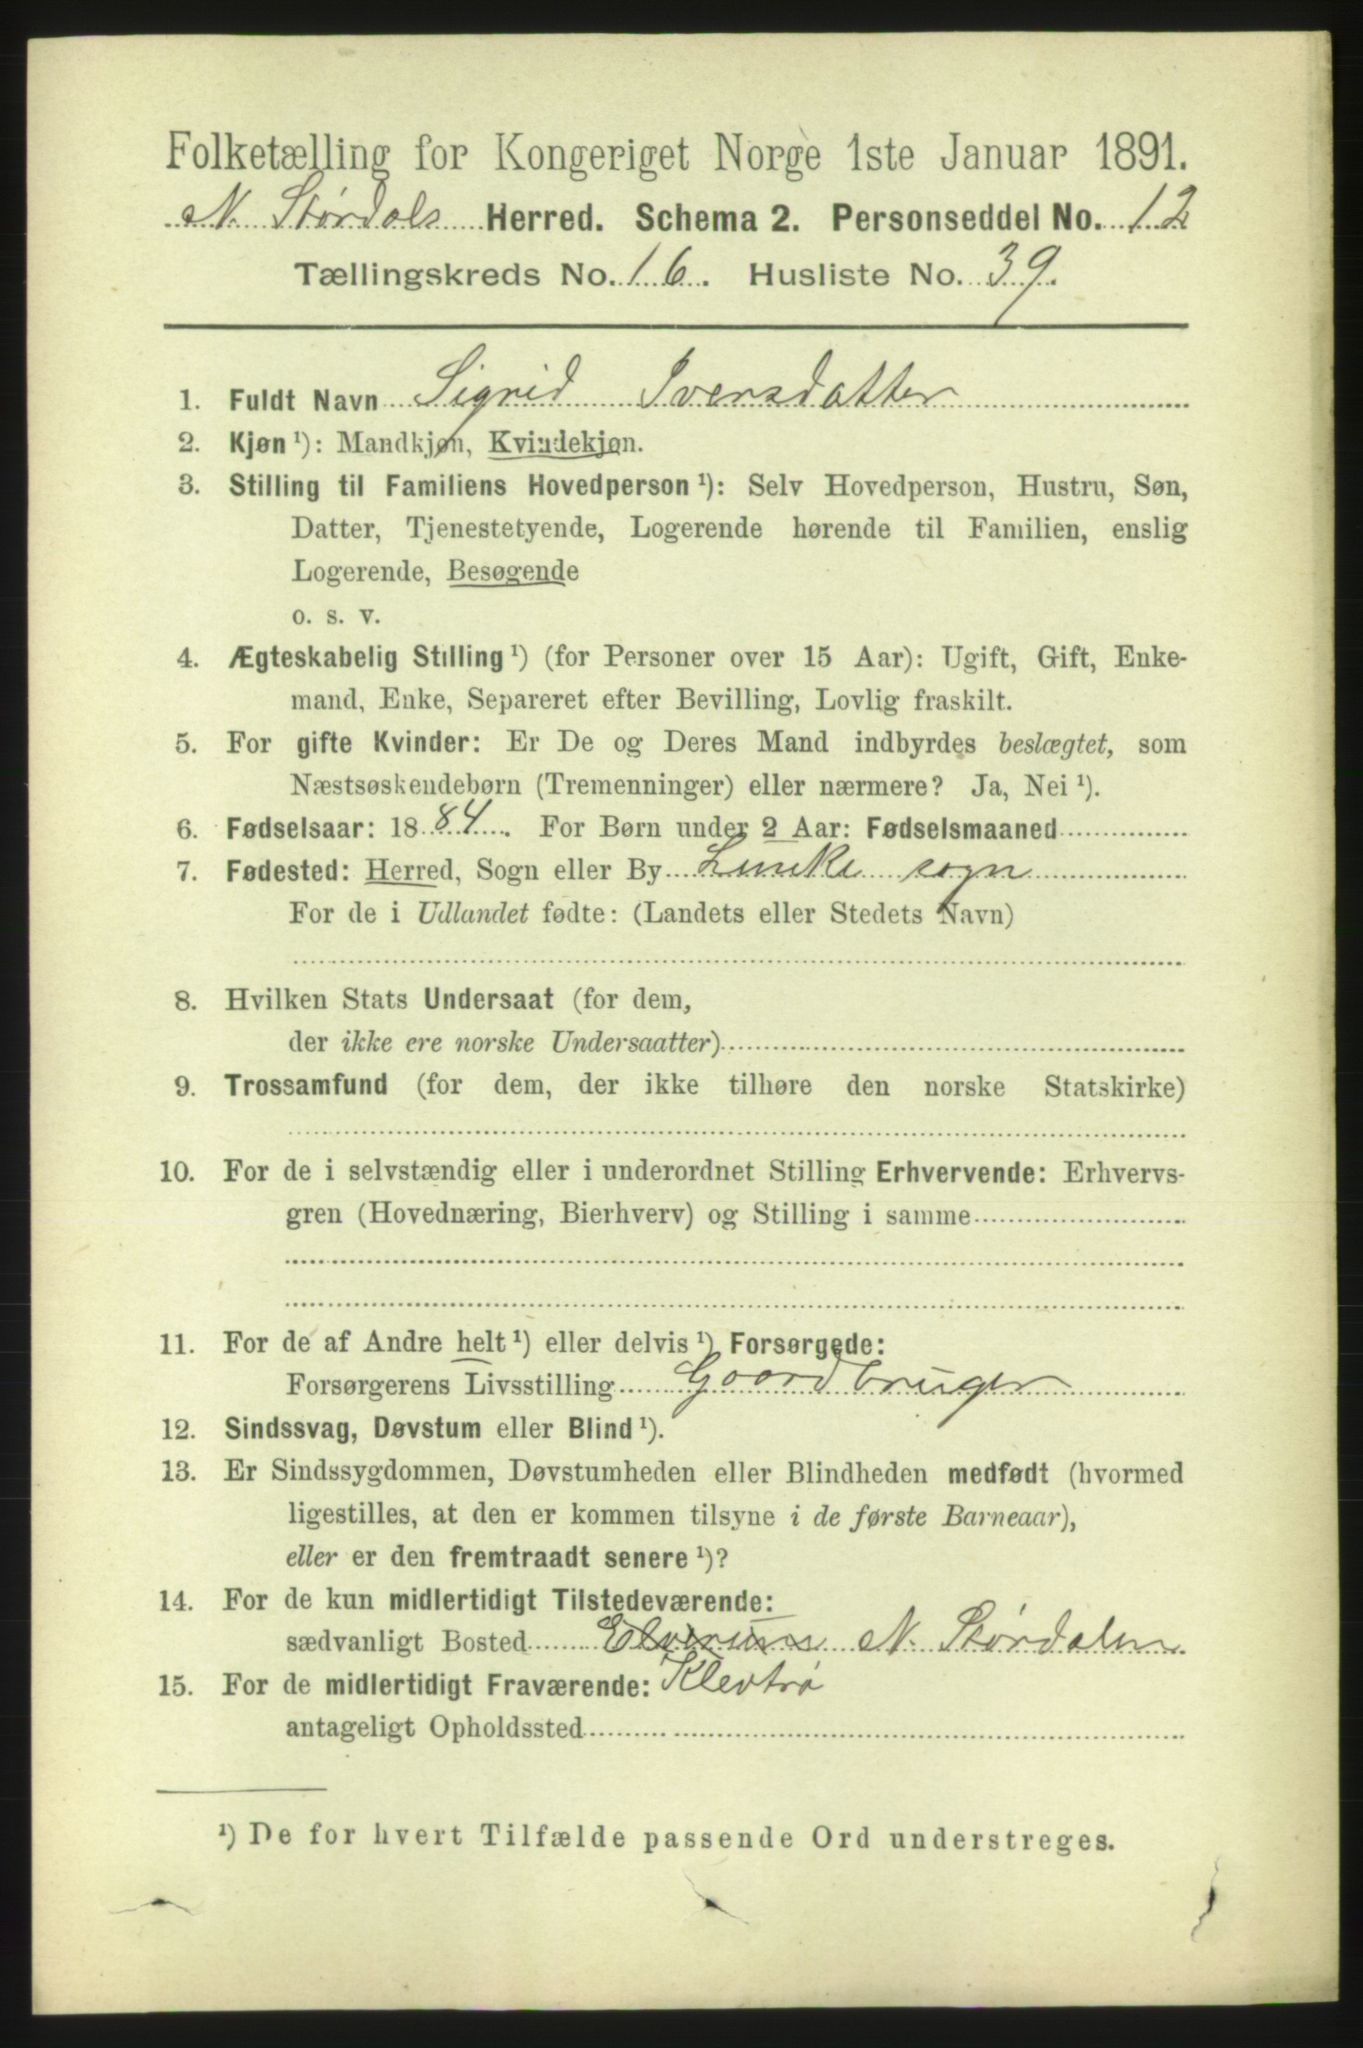 Folketælling for Kongeriget Norge 1ste Januar 1891.
N. Størdals Herred. Schema 2. Personseddel No. 12
Tællingskreds No. 16. Husliste No. 39.
1. Fuldt Navn Sigrid Iversdatter
2. Kjøn ¹): Mandkjøn, Kvindekjøn.
3. Stilling til Familiens Hovedperson ¹): Selv Hovedperson, Hustru, Søn,
Datter, Tjenestetyende, Logerende hørende til Familien, enslig
Logerende, Besøgende
o. s. v.
4. Ægteskabelig Stilling ¹) (for Personer over 15 Aar): Ugift, Gift, Enke-
mand, Enke, Separeret efter Bevilling, Lovlig fraskilt.
5. For gifte Kvinder: Er De og Deres Mand indbyrdes beslægtet, som
Næstsøskendebørn (Tremenninger) eller nærmere? Ja, Nei ¹).
6. Fødselsaar: 1884. For Børn under 2 Aar: Fødselsmaaned
7. Fødested: Herred, Sogn eller By Lunke sogn
For de i Udlandet fødte: (Landets eller Stedets Navn)
8. Hvilken Stats Undersaat (for dem,
der ikke ere norske Undersaatter)
9. Trossamfund (for dem, der ikke tilhøre den norske Statskirke)
10. For de i selvstændig eller i underordnet Stilling Erhvervende: Erhvervs-
gren (Hovednæring, Bierhverv) og Stilling i samme
11. For de af Andre helt ¹) eller delvis ¹) Forsørgede:
Forsørgerens Livsstilling Gaardbruger
12. Sindssvag, Døvstum eller Blind ¹).
13. Er Sindssygdommen, Døvstumheden eller Blindheden medfødt (hvormed
ligestilles, at den er kommen tilsyne i de første Barneaar),
eller er den fremtraadt senere ¹)?
14. For de kun midlertidigt Tilstedeværende:
sædvanligt Bosted N. Størdalen
15. For de midlertidigt Fraværende: Klevtrø
antageligt Opholdssted
¹) De for hvert Tilfælde passende Ord understreges.